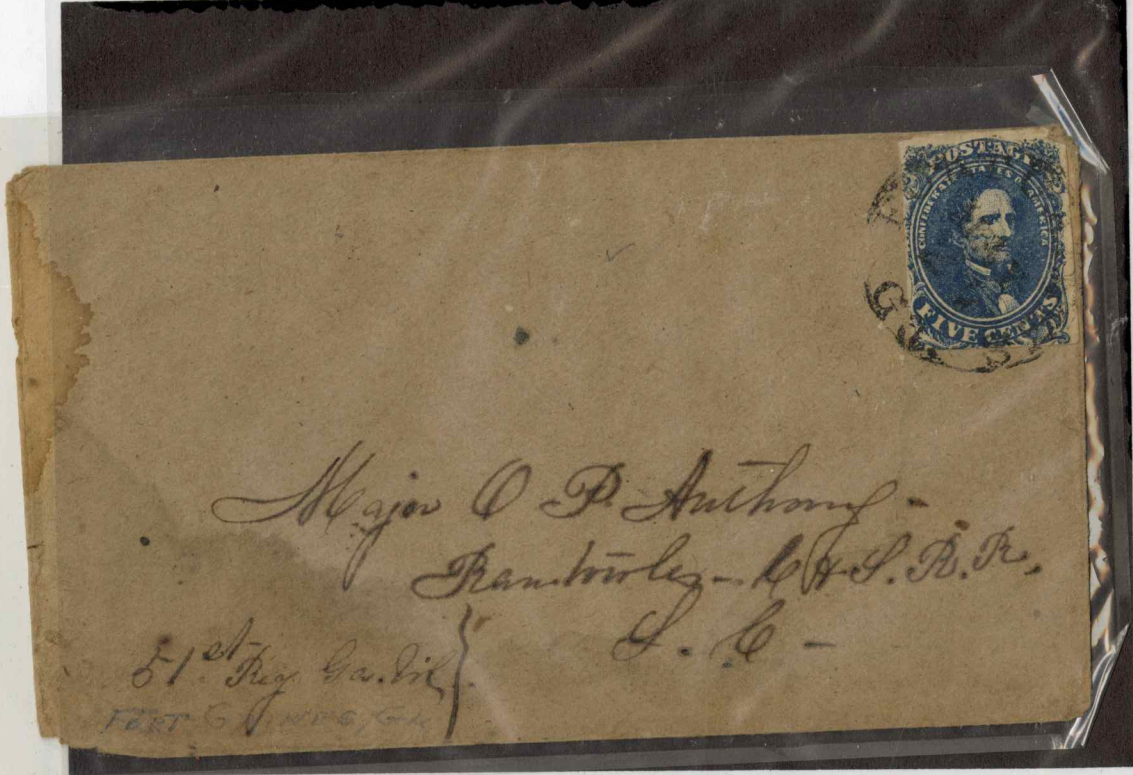 POSTAGE
CONFEDERATE STATES OF AMERICA
FIVE CENTS
Major O P. Anthony -
Rantowles - C & S. R. R.
S. C -
51st Reg. Ga. Vol
FORT GAINES GA